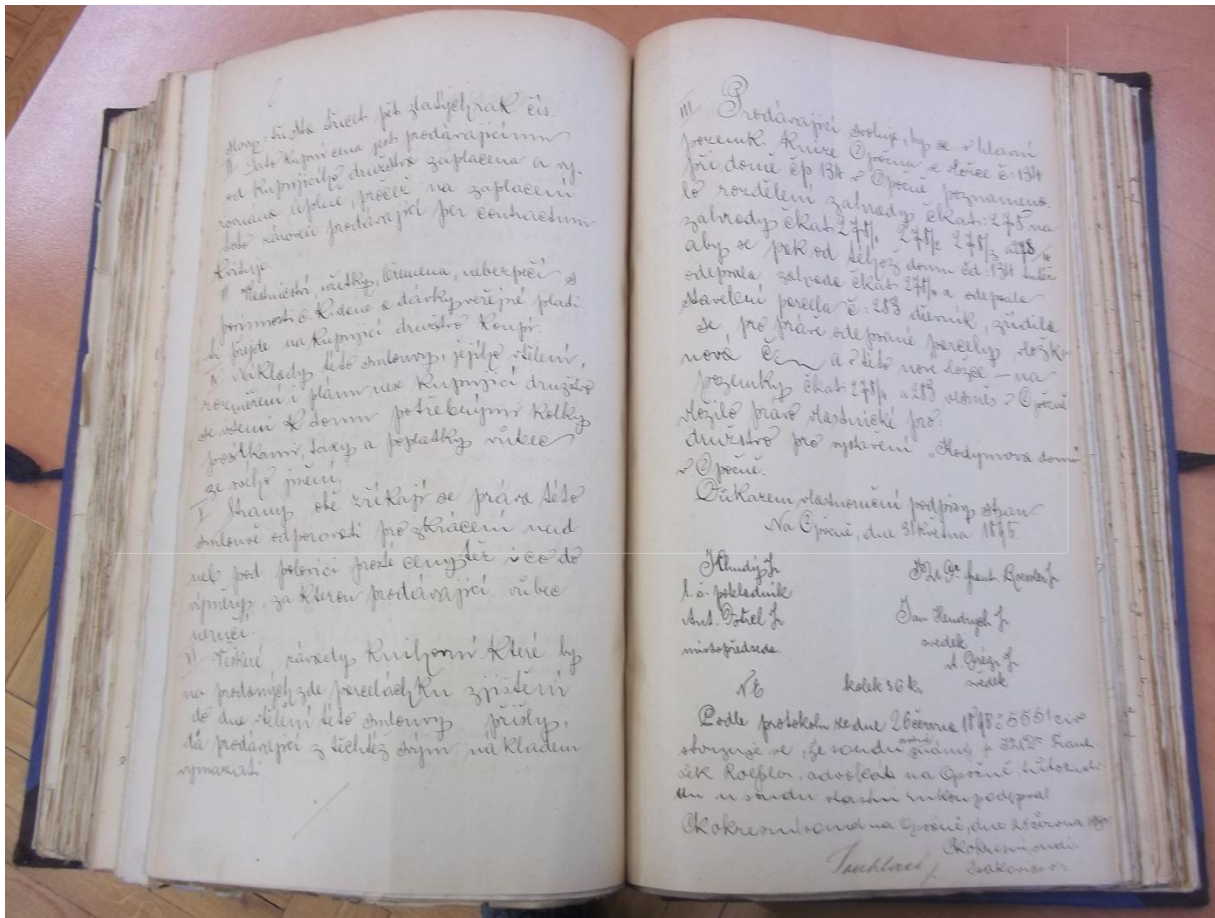 slovy: tři sta třicet pět zlatých rak. čís.
II Tato kupní cena jest prodávajícímu
od kupujícího družstva zaplacena a vy-
rovnána úplně, pročež na zaplacení
této zároveň prodávající per contractum
kvituje.
III Vlastnictví, užitky, břemena, nebezpečí a
povinnosti k daně a dávky veřejné platí
ti přejde na kupující družstvo koupí.
IV Náklady této smlouvy, jejího vtělení,
rozměření i plánu nese kupující družstvo
se všemi k tomu potřebnými kolky
poštkami, taxy a poplatky vůbec
ze svého jmění.
V Strany obě zříkají se práva této
smlouvě odporovati pro zkrácení nad
neb pod polovici pravé ceny též i co do
výměry, za kterou prodávající vůbec
neručí.
VI Veškeré závady knihovní které by
na prodaných zde parcelách ku zjištění
do dne vtělení této smlouvy přišly,
dá prodávající z těchže svým nákladem
vymazati.
VII Prodávající svoluje, by se v hlavní
pozemk. knize Opočna ve vložce č: 134
při domě čp 134 v Opočně poznameno-
lo rozdělení zahrady čkat: 278 na
zahrady čkat 278/1 278/2 278/3 a 278/4
aby se pak od téhož domu čd: 134
odepsala zahrada čkat 278/4 a odepsala
stavební parcela č: 283 , zřídila
se pro právě odepsané parcely vložka
nová č. a v této nové vložce – na
pozemky čkat 278/4 a 283 v Opočně
vložilo právo vlastnické pro:
družstvo pro vystavení „Kodymova domu“
v Opočně.
Důkazem vlastnoruční podpisy stran
Na Opočně, dne 31 května 1898.
JChudý
t. č. pokladník
JUDr. frant. Roessler
Ant.
místopředseda.
Jan Hendrych
svědek
svědek
kolek 36 kr.
Podle protokolu ze dne 26 června 1898 č 5551 civ
stvrzuje se, že soudu známý p. JUDr. Franti-
šek Roessler, advokát na Opočně, tuto
u soudu vlastní rukou podepsal
Ck okresní soud na Opočně, dne 26 června
Ck okresní soudce